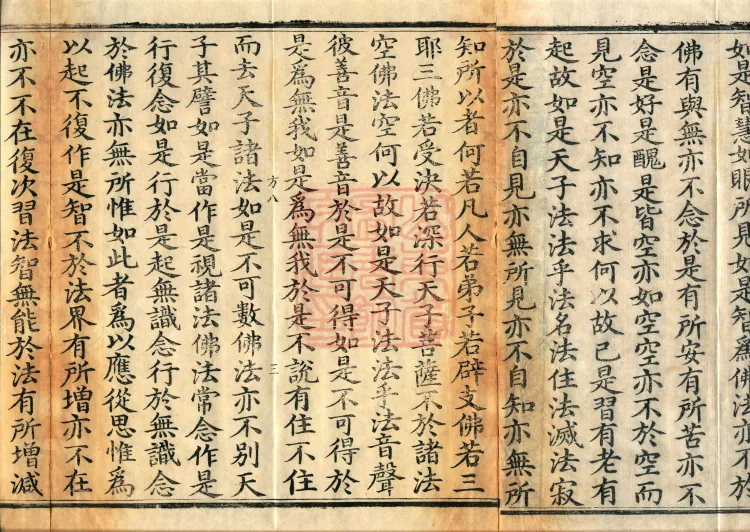 如是智慧如眼所見如是知為佛法亦不於
佛有與無亦不念於是有所安有所苦亦不
念是好是醜是皆空亦如空空亦不於空而
見空亦不知亦不求何以故已是習有老有
起故如是天子法法乎法名法住法滅法寂
於是亦不自見亦無所見亦不自知亦無所
知所以者何若凡人若弟子若辟支佛若三
耶三佛若受決若深行天子菩薩不於諸法
空佛法空何以故如是天子法法乎法音聲
彼善音是善音於是不可得如是不可得於
是為無我如是為無我於是不說有住不住
方八
三
而去天子諸法如是不可數佛法亦不別天
子其譬如是當作是視諸法佛法常念作是
行復念如是行於是起無識念行於無識念
於佛法亦無所惟如此者為以應從思惟為
以起不復作是智不於法界有所增亦不在
亦不不在復次習法智無能於法有所增減